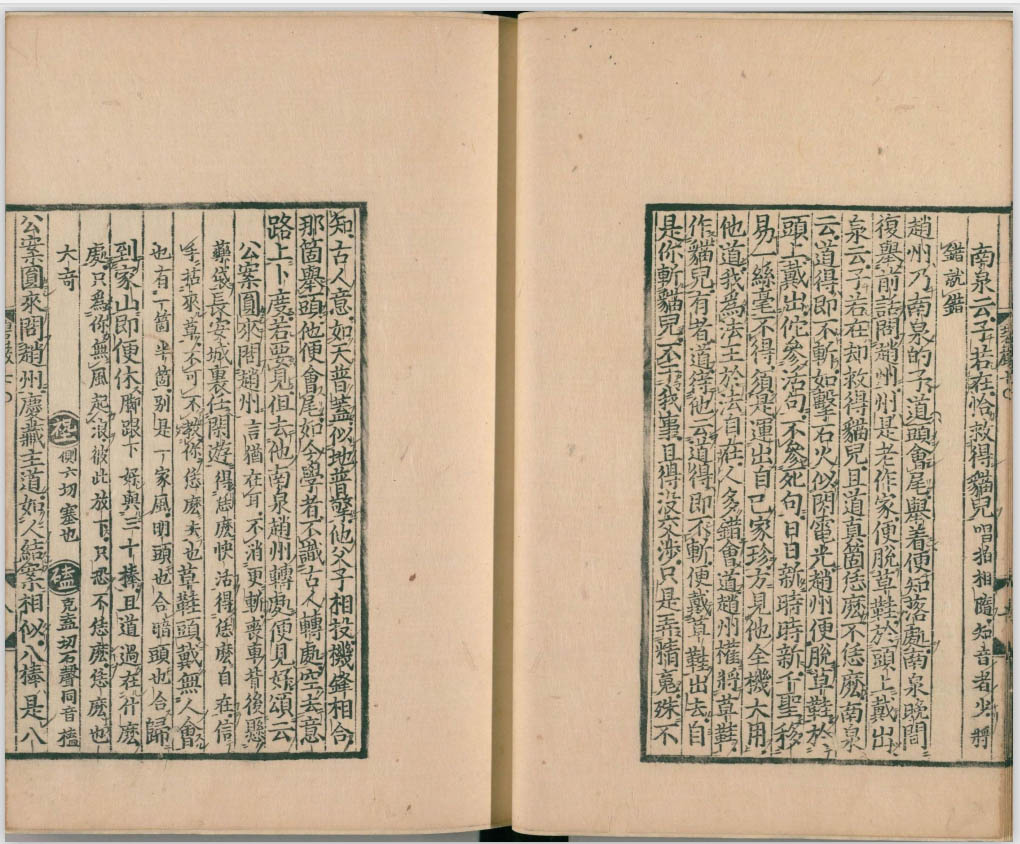 南泉云。子若在恰救得貓兒 唱拍相隨。知音者少。將
錯就錯
趙州乃南泉的子。道頭會尾。舉着便知落處。南泉晚間
復舉前話問趙州。州是老作家。便脫草鞋於頭上戴出。
泉云。子若在却救得貓兒。且道真箇恁麼不恁麼。南泉
云。道得即不斬。如擊石火似閃電光。趙州便脫草鞋於
頭上戴出。佗參活句。不參死句。日日新。時時新。千聖移
易一絲毫不得。須是運出自己家珍。方見他全機大用。
他道。我為法王於法自在。人多錯會道。趙州權將草鞋。
作貓兒。有者道。待他云。道得即不斬。便戴草鞋出去。自
是你斬貓兒。不干我事。且得沒交涉。只是弄精䰟。殊不
知。古人意。如天普蓋。似地普擎。他父子相投。機鋒相合。
那箇舉頭。他便會尾。如今學者。不識古人轉處。空去意
路上卜度。若要見。但去他南泉趙州轉處便見好。頌云
公案圓來問趙州 言猶在耳。不消更斬。喪車背後懸
藥袋 長安城裏任閑遊 得恁麼快活。得恁麼自在。信
手拈來草。不可不教你恁麼去也 草鞋頭戴無人會
也有一箇半箇。別是一家風。明頭也合暗頭也合 歸
到家山即便休 脚跟下好與三十棒。且道過在什麼
處。只為你無風起浪。彼此放下。只恐不恁麼恁麼也
大奇 側六切塞也 磕 克蓋切石聲同音榼
公案圓來問趙州。慶藏主道。如人結案相似。八棒是八